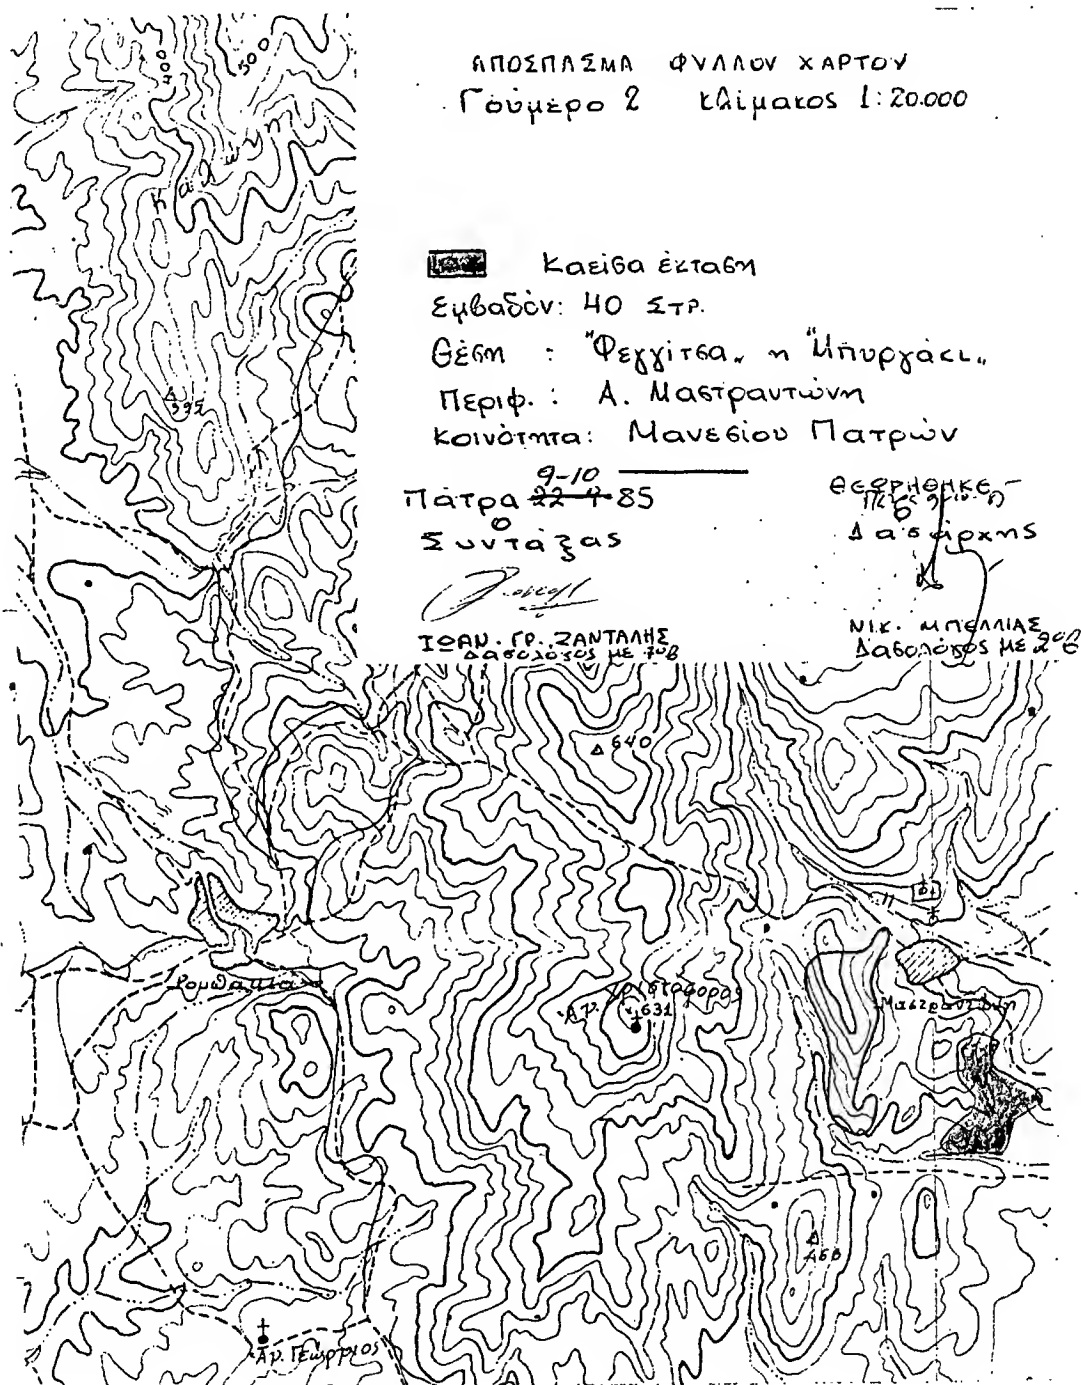 ΑΠΟΣΠΑΣΜΑ ΦΥΛΛΟΥ ΧΑΡΤΟΥ
Γούμερο 2 κλίμακος 1:20.000
Καείσα έκταση
Εμβαδόν: 40 ΣΤΡ.
Θέση : "Φεγγίτσα„ η "Μπυργάκι„
Περιφ. : Α. Μαστραντώνη
Κοινότητα: Μανεσίου Πατρών
9-10
Πάτρα 22-7-85
Ο
Συντάξας
ΙΩΑΝ. ΓΡ. ΖΑΝΤΑΛΗΣ
Δασολόγος με 7ο β
ΘΕΩΡΗΘΗΚΕ
Ο
Δασάρχης
ΝΙΚ. ΜΠΕΛΛΙΑΣ
Δασολόγος με 2ο β
500
400
Καλ
595
640
Αγ. Χριστόφορος
631
Μαστραντώνη
468
Αγ. Γεώργιος